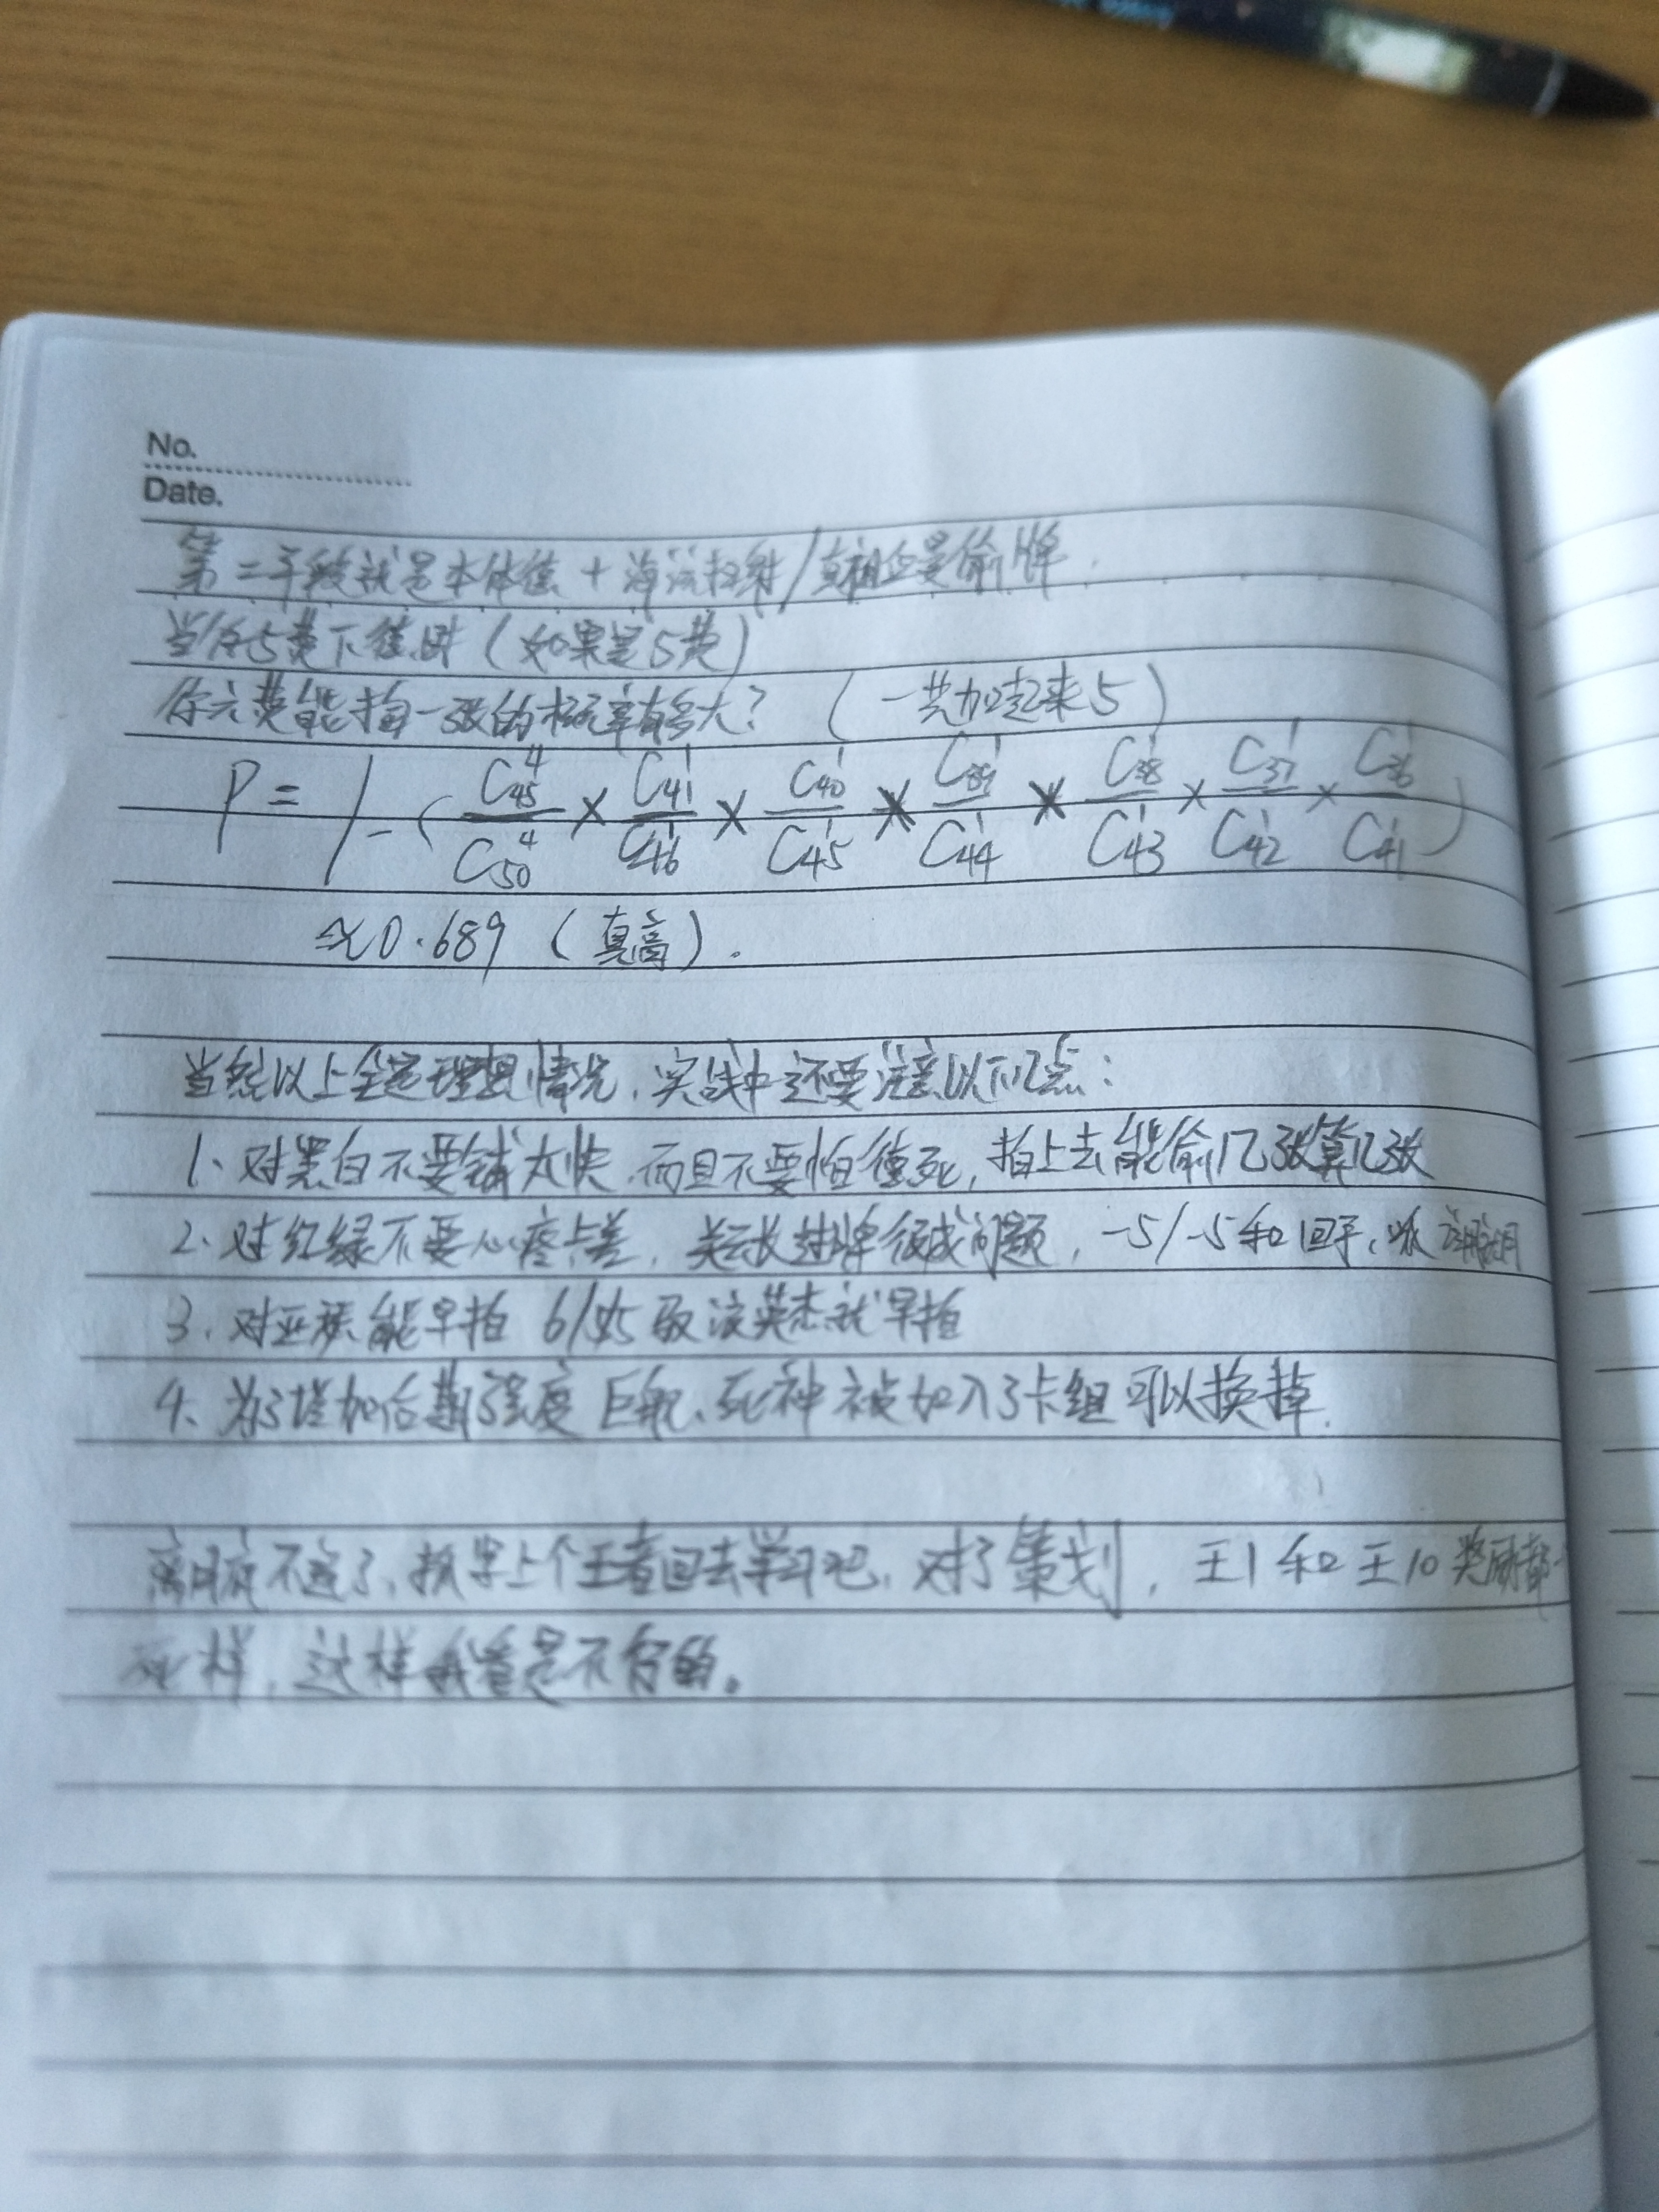 No.
Date.
第二手段就是本体德 + 海滨扫射/真相企曼偷牌.
当你5费下德时 (如果是5费)
你六费能拍一张的概率有多大? (一共加起来5)
P = 1 - ( C₄₅⁴/C₅₀⁴ × C₄₁¹/C₄₆¹ × C₄₀¹/C₄₅¹ × C₃₉¹/C₄₄¹ × C₃₈¹/C₄₃¹ × C₃₇¹/C₄₂¹ × C₃₆¹/C₄₁¹ )
≈0.689 (真高).
当然以上全是理想情况,实战中还要注意以下几点:
1、对黑白不要铺太快,而且不要怕德死,拍上去能偷几张算几张
2、对红绿不要心疼卡差,过牌很成问题,-5/-5和回手、
3、对亚猴能早拍 6/5 英杰就早拍
4、为了增加后期强度 巨航、死神被加入了卡组可以换掉.
不远了,上个王者回去学习吧,对了策划,王1和王10奖励都一
死样,这样我看是不行的。